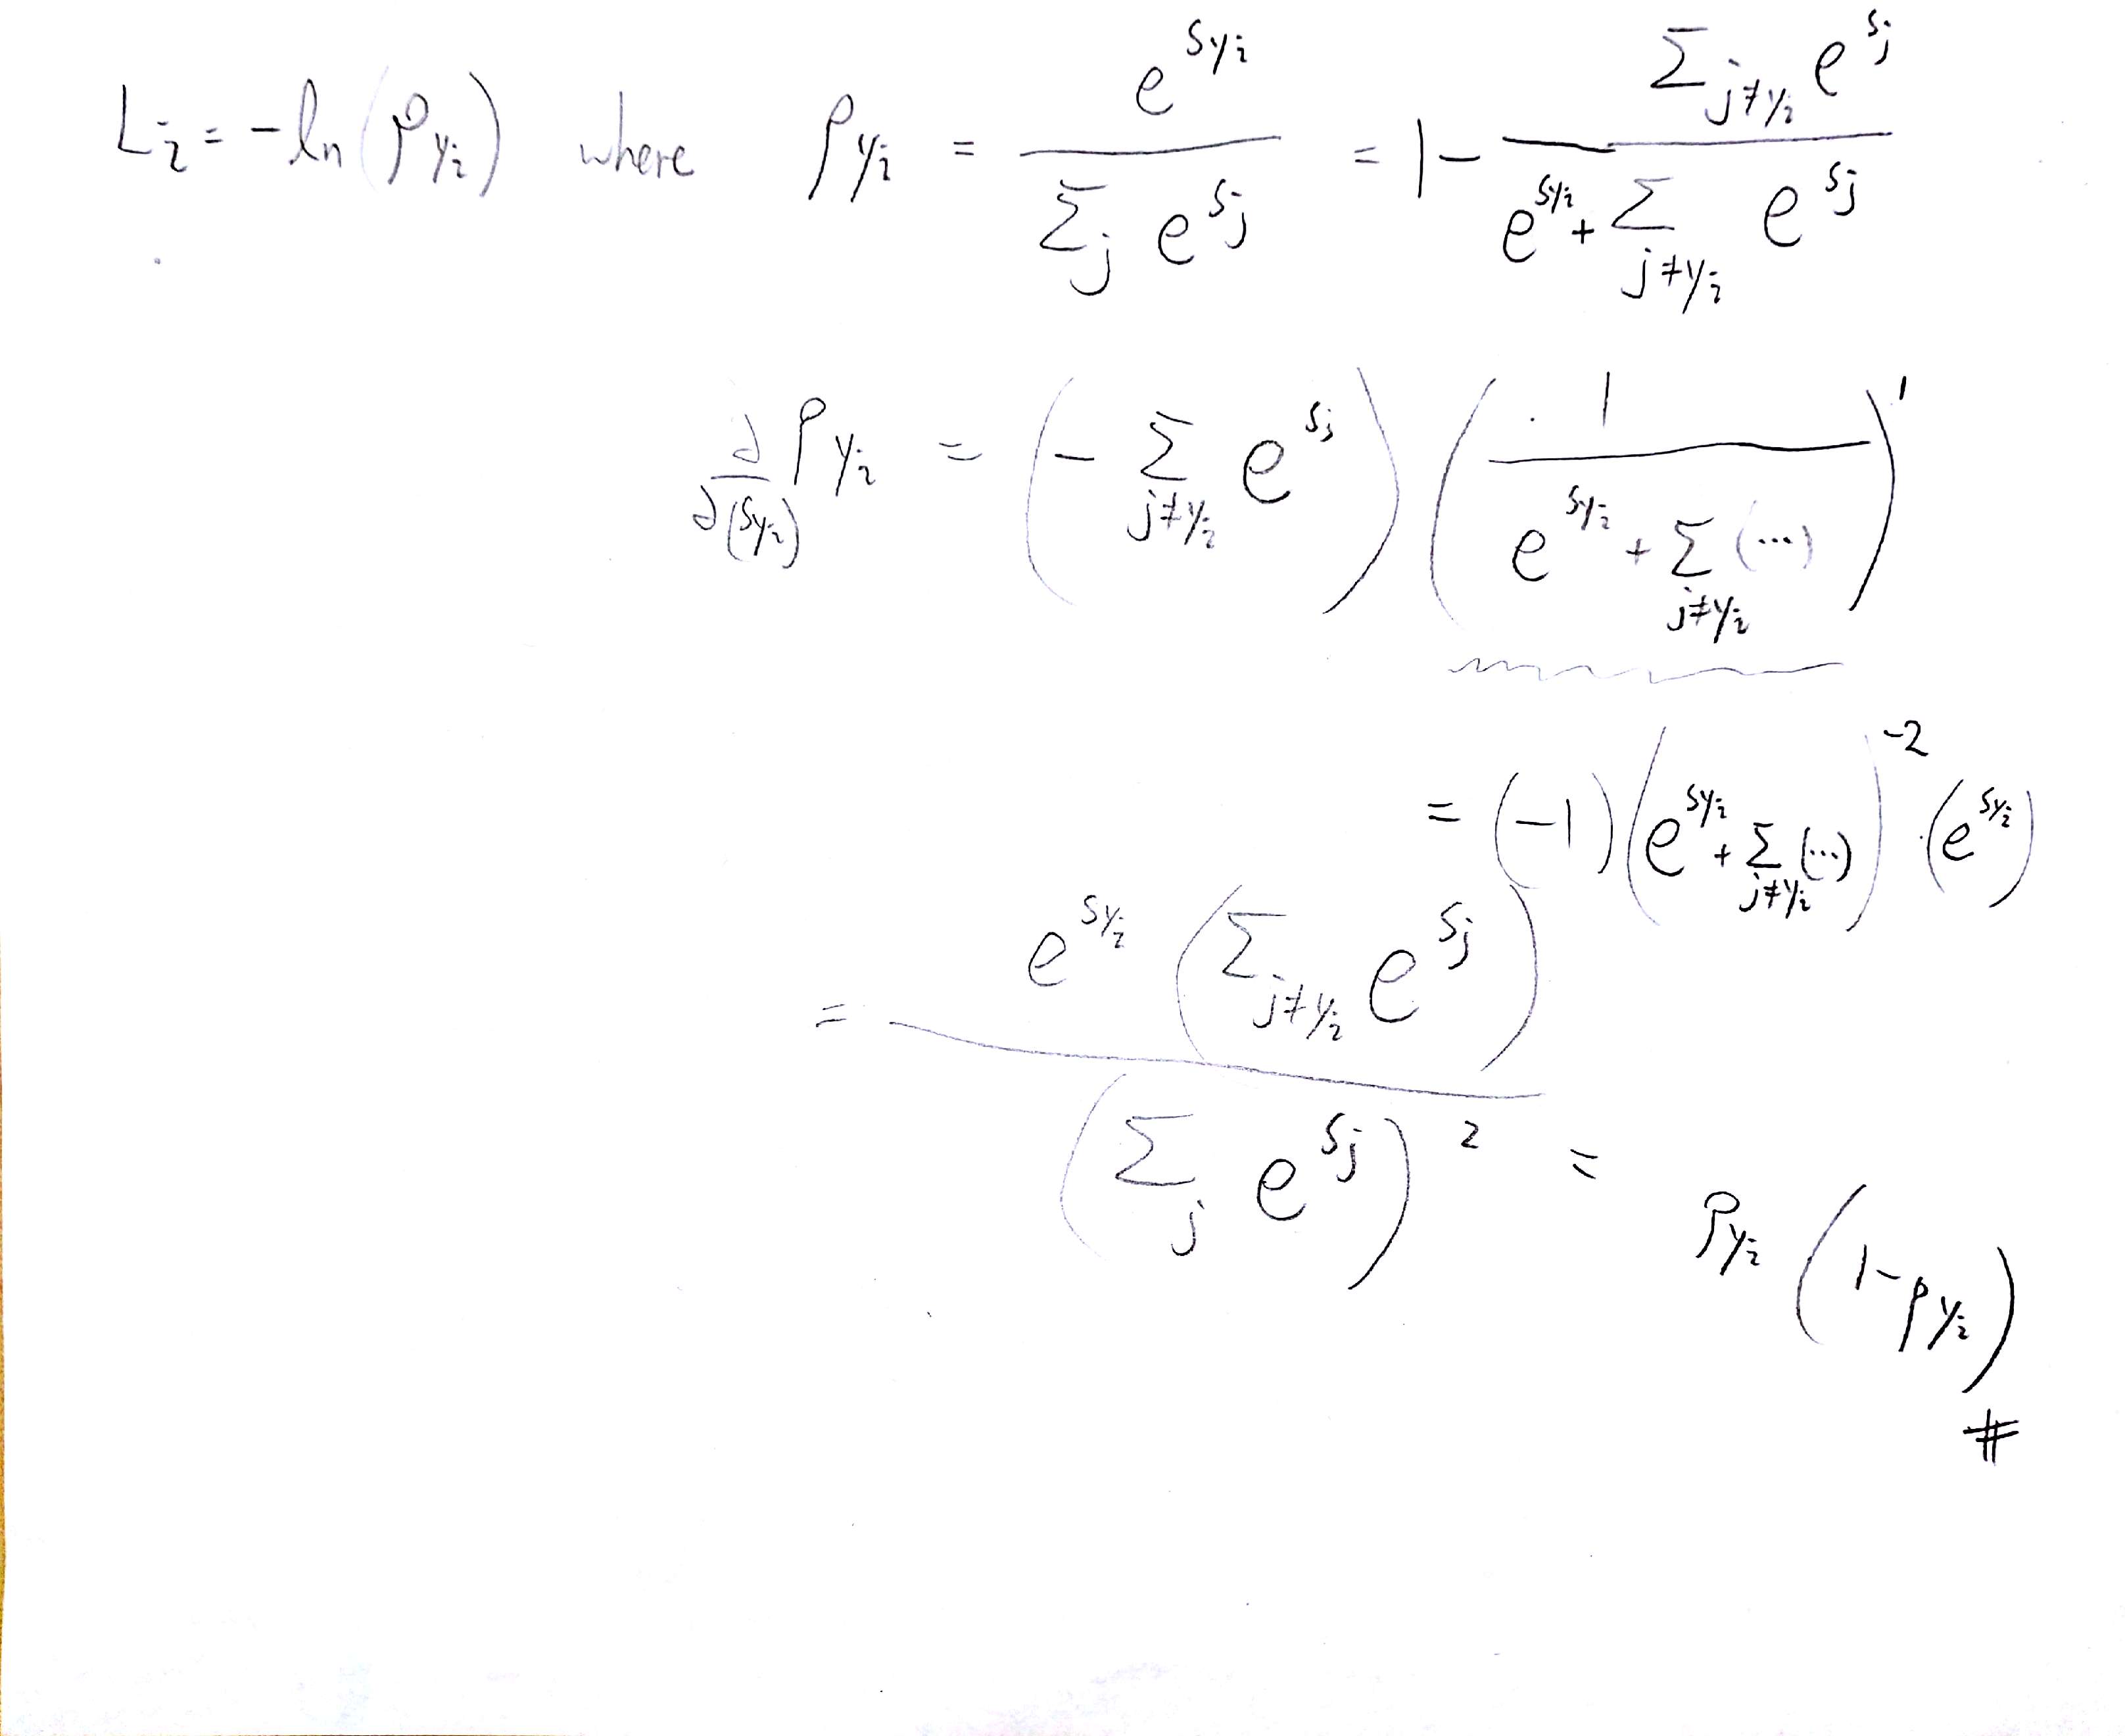 L_i = -ln(p_{y_i}) where p_{y_i} = \frac{e^{s_{y_i}}}{\sum_j e^{s_j}} = 1 - \frac{\sum_{j≠y_i} e^{s_j}}{e^{s_{y_i}} + \sum_{j≠y_i} e^{s_j}}
\frac{∂}{∂(s_{y_i})} p_{y_i} = \left( -\sum_{j≠y_i} e^{s_j} \right) \left( \frac{1}{e^{s_{y_i}} + \sum_{j≠y_i} (...)} \right)'
= (-1) \left( e^{s_{y_i}} + \sum_{j≠y_i} (...) \right)^{-2} · (e^{s_{y_i}})
= \frac{e^{s_{y_i}} \left( \sum_{j≠y_i} e^{s_j} \right)}{\left( \sum_j e^{s_j} \right)^2} = p_{y_i} (1 - p_{y_i})
#